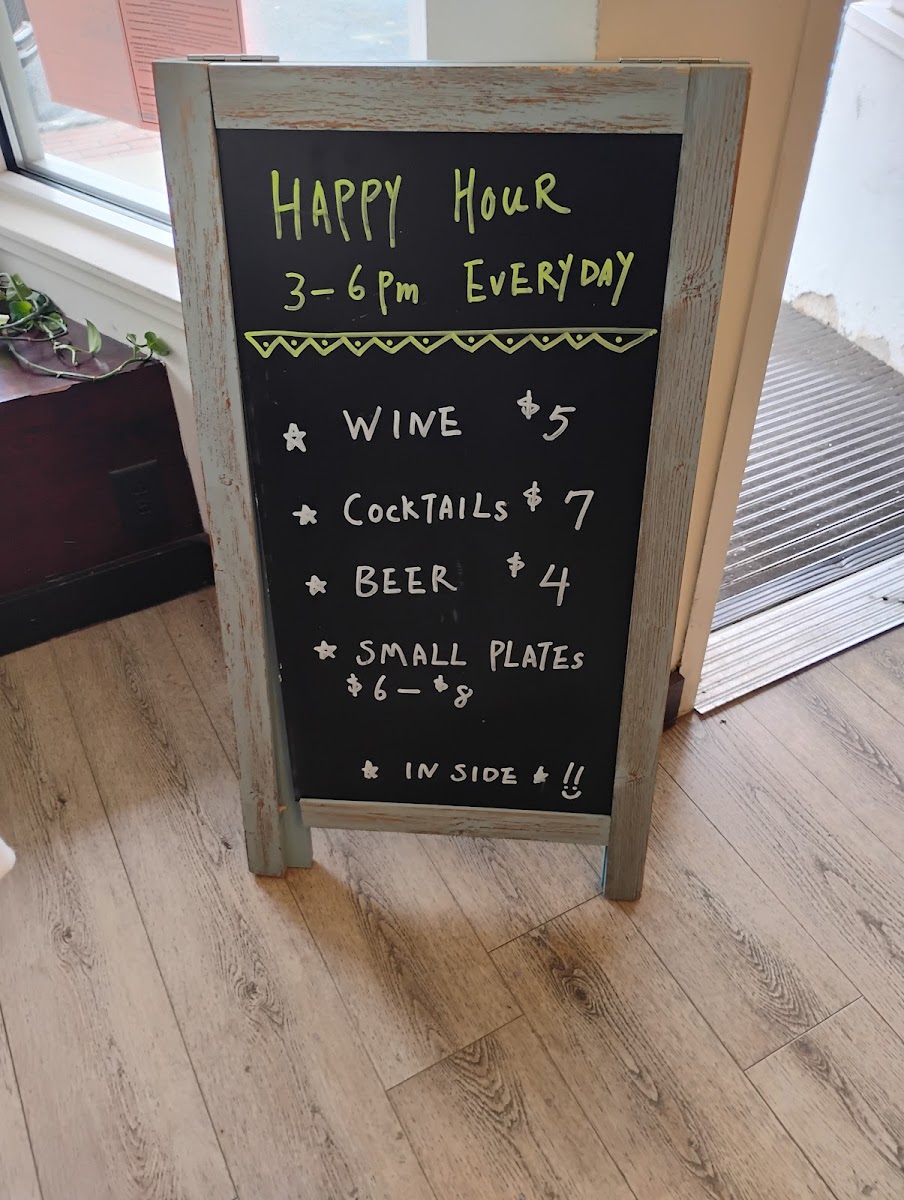 HAPPY HOUR
3-6pm EVERYDAY
WINE $5
COCKTAILS $7
BEER $4
SMALL PLATES
$6-$8
IN SIDE !!